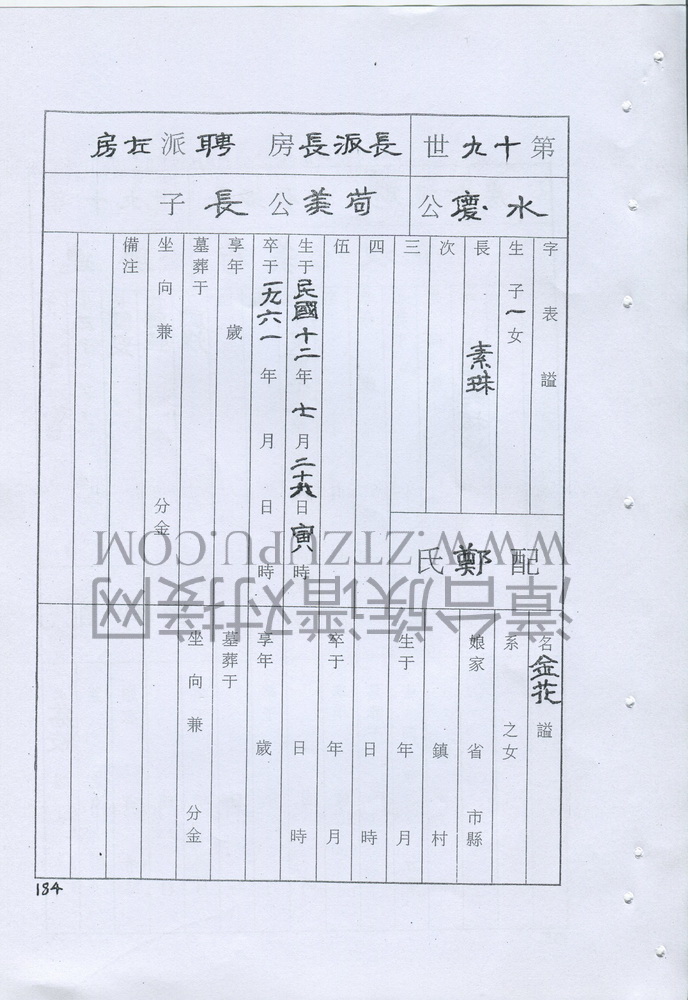 第十九世
長派長房 聘派左房
水慶公
荀美公長子
字 表 謚
生子一女
長 素珠
次
三
四
伍
生于民國十二年七月二十六日寅時
卒于一九六一年 月 日 時
享年 歲
墓葬于
坐向兼 分金
備注
配鄭氏
名金花 謚
系 之女
娘家 省 市縣
鎮 村
生于 年 月
日 時
卒于 年 月
日 時
享年 歲
墓葬于
坐向兼 分金
184
WWW.ZTZUPU.COM
漳台族谱对接网